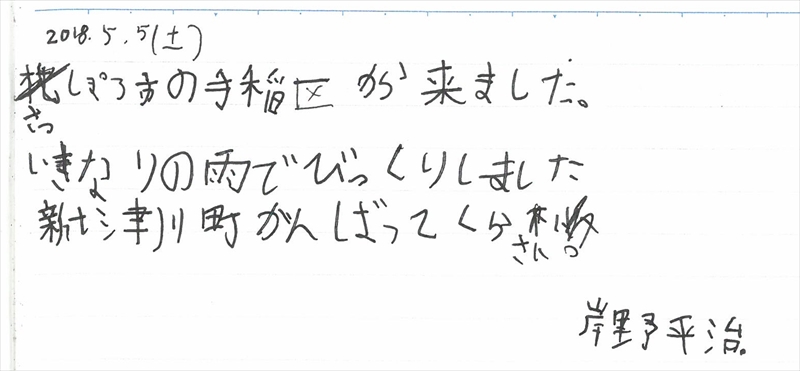 2018.5.5(土)
さっぽろ市の手稲区から来ました。
いきなりの雨でびっくりしました
新十津川町がんばってくらさい。
岸野平治